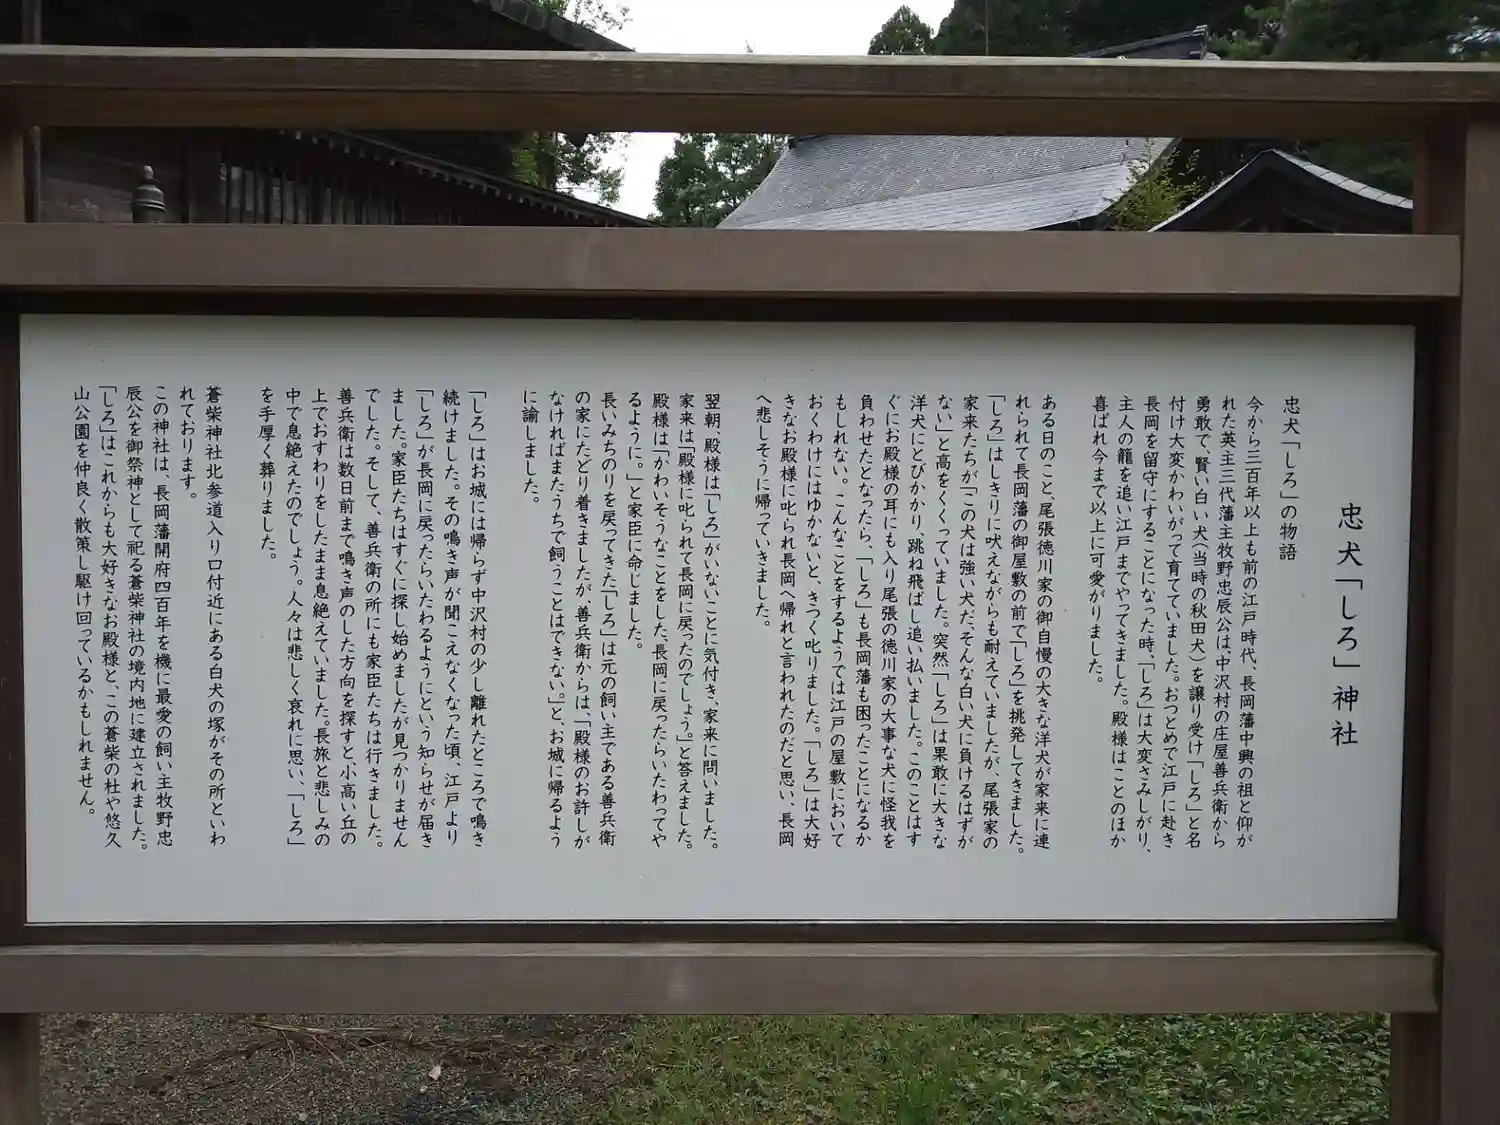 忠犬「しろ」神社
忠犬「しろ」の物語
今から三百年以上も前の江戸時代、長岡藩中興の祖と仰が
れた英主三代藩主牧野忠辰公は、中沢村の庄屋善兵衛から
勇敢で、賢い白い犬（当時の秋田犬）を譲り受け「しろ」と名
付け大変かわいがって育てていました。おつとめで江戸に赴き
長岡を留守にすることになった時、「しろ」は大変さみしがり、
主人の籠を追い江戸までやってきました。殿様はことのほか
喜ばれ今まで以上に可愛がりました。
ある日のこと、尾張徳川家の御自慢の大きな洋犬が家来に連
れられて長岡藩の御屋敷の前で「しろ」を挑発してきました。
「しろ」はしきりに吠えながらも耐えていましたが、尾張家の
家来たちが「この犬は強い犬だ、そんな白い犬に負けるはずが
ない」と高をくくっていました。突然「しろ」は果敢に大きな
洋犬にとびかかり、跳ね飛ばし追い払いました。このことはす
ぐにお殿様の耳にも入り尾張の徳川家の大事な犬に怪我を
負わせたとなったら、「しろ」も長岡藩も困ったことになるか
もしれない。こんなことをするようでは江戸の屋敷において
おくわけにはゆかないと、きつく叱りました。「しろ」は大好
きなお殿様に叱られ長岡へ帰れと言われたのだと思い、長岡
へ悲しそうに帰っていきました。
翌朝、殿様は「しろ」がいないことに気付き、家来に問いました。
家来は「殿様に叱られて長岡に戻ったのでしょう。」と答えました。
殿様は「かわいそうなことをした、長岡に戻ったらいたわってや
るように。」と家臣に命じました。
長いみちのりを戻ってきた「しろ」は元の飼い主である善兵衛
の家にたどり着きましたが、善兵衛からは、「殿様のお許しが
なければまたうちで飼うことはできない。」と、お城に帰るよう
に諭しました。
「しろ」はお城には帰らず中沢村の少し離れたところで鳴き
続けました。その鳴き声が聞こえなくなった頃、江戸より
「しろ」が長岡に戻ったらいたわるようにという知らせが届き
ました。家臣たちはすぐに探し始めましたが見つかりません
でした。そして、善兵衛の所にも家臣たちは行きました。
善兵衛は数日前まで鳴き声のした方向を探すと、小高い丘の
上でおすわりをしたまま息絶えていました。長旅と悲しみの
中で息絶えたのでしょう。人々は悲しく哀れに思い、「しろ」
を手厚く葬りました。
蒼柴神社北参道入り口付近にある白犬の塚がその所といわ
れております。
この神社は、長岡藩開府四百年を機に最愛の飼い主牧野忠
辰公を御祭神として祀る蒼柴神社の境内地に建立されました。
「しろ」はこれからも大好きなお殿様と、この蒼柴の杜や悠久
山公園を仲良く散策し駆け回っているかもしれません。